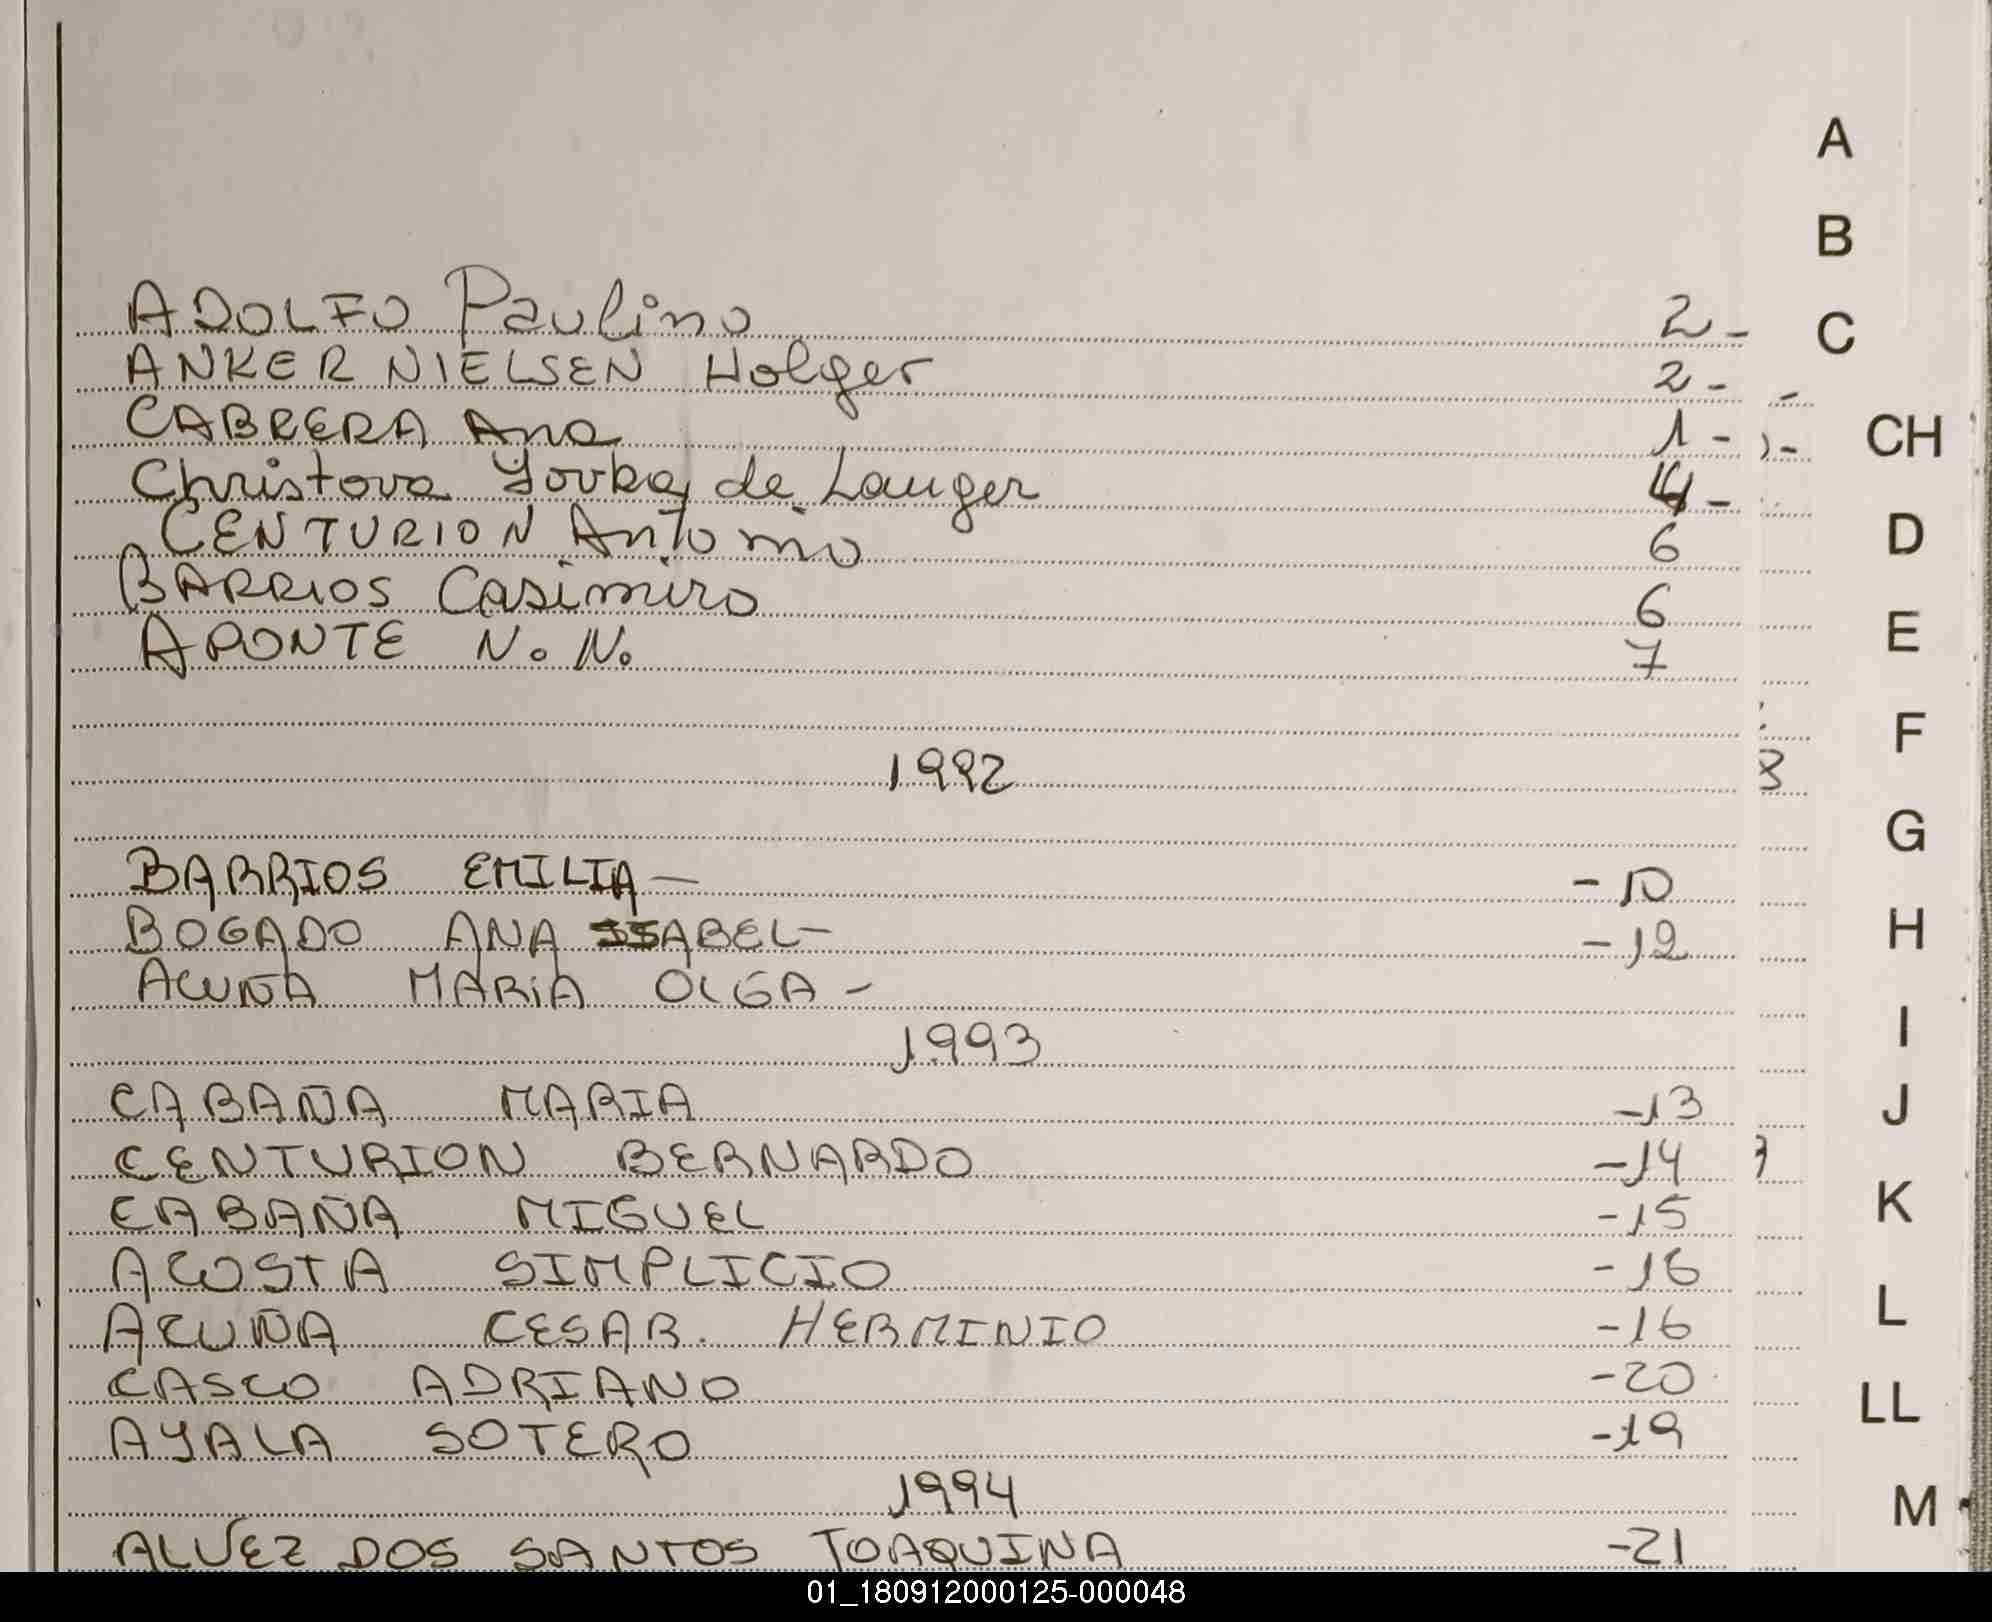 ADOLFO Paulino 2-
ANKER NIELSEN Holger 2-
CABRERA Ana 1-
Christova Yovka de Lauger 4-
CENTURION Antonio 6
BARRIOS Casimiro 6
APONTE N. N. 7
1992
3
BARRIOS EMILIA- -10
BOGADO ANA ISABEL- -12
ACUÑA MARIA OLGA-
1993
CABAÑA MARIA -13
CENTURION BERNARDO -14
CABAÑA MIGUEL -15
ACOSTA SIMPLICIO -16
ACUÑA CESAR. HERMINIO -16
CASCO ADRIANO -20
AYALA SOTERO -19
1994
ALVEZ DOS SANTOS JOAQUINA -21
A
B
C
CH
D
E
F
G
H
I
J
K
L
LL
M
01_180912000125-000048